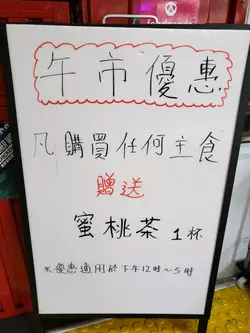 午市優惠
凡購買任何主食
贈送
蜜桃茶 1杯
※優惠適用於下午12時~5時